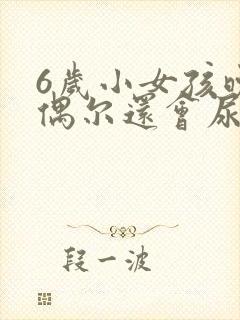 6歲小女孩晚
偶尔還會尿
段一波